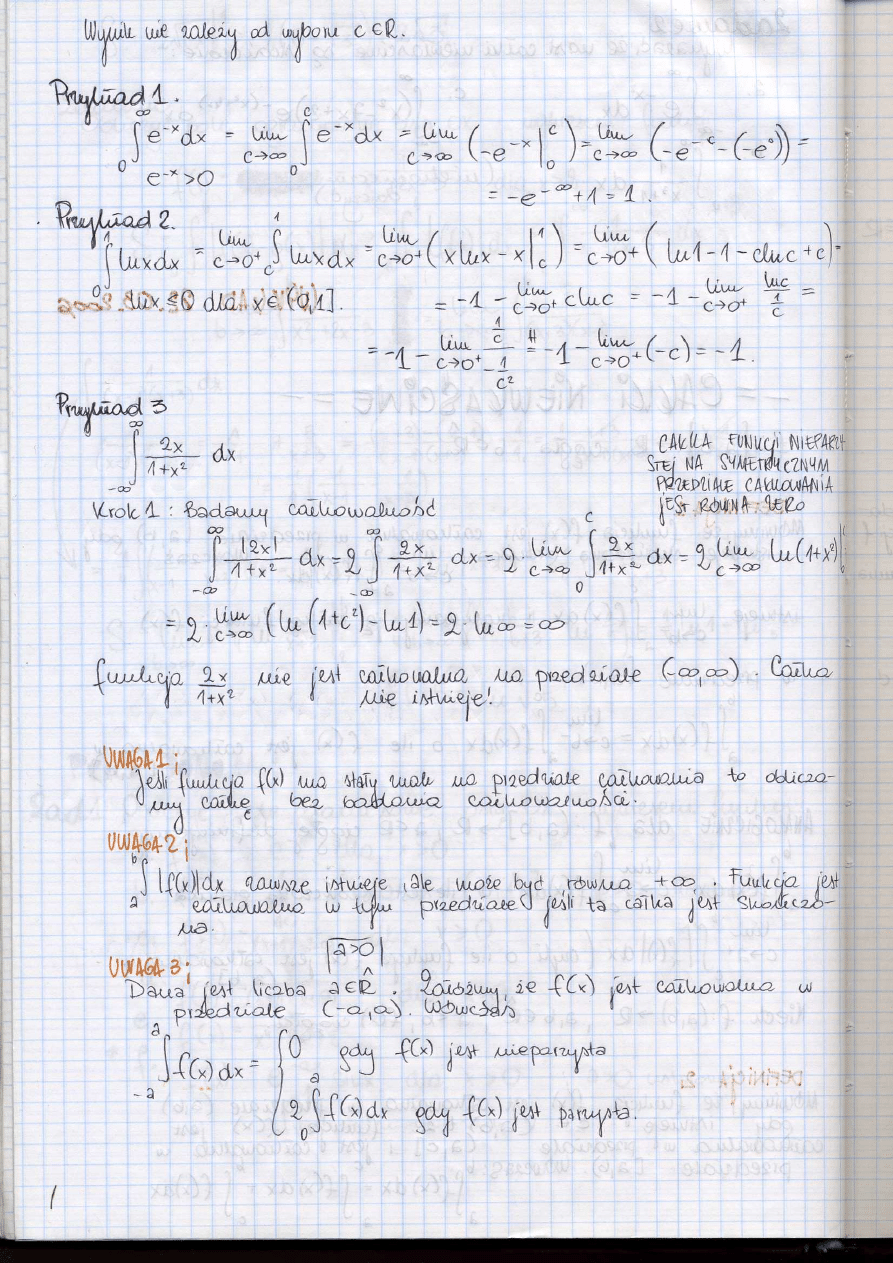 Wynik nie zależy od wyboru c ∈ ℝ.
Przykład 1.
∫₀^∞ e^{-x} dx = lim_{c→∞} ∫₀^c e^{-x} dx = lim_{c→∞} (-e^{-x} |₀^c) = lim_{c→∞} (-e^{-c} - (-e⁰)) =
e^{-x} > 0
= -e^{-∞} + 1 = 1.
Przykład 2.
∫₀¹ lnx dx = lim_{c→0⁺} ∫_c¹ lnx dx = lim_{c→0⁺} (x lnx - x |_c¹) = lim_{c→0⁺} (ln1 - 1 - c lnc + c) =
lnx ≤ 0 dla x ∈ (0,1].
= -1 - lim_{c→0⁺} c lnc = -1 - lim_{c→0⁺} \frac{lnc}{\frac{1}{c}} =
= -1 - lim_{c→0⁺} \frac{\frac{1}{c}}{-\frac{1}{c²}} =^H -1 - lim_{c→0⁺} (-c) = -1.
Przykład 3
∫_{-∞}^∞ \frac{2x}{1+x²} dx
CAŁKA FUNKCJI NIEPARZY
STEJ NA SYMETRYCZNYM
PRZEDZIALE CAŁKOWANIA
JEST RÓWNA ZERO
Krok 1: Badamy całkowalność
∫_{-∞}^∞ \frac{|2x|}{1+x²} dx = 2 ∫_{-∞}^∞ \frac{2x}{1+x²} dx = 2 · lim_{c→∞} ∫₀^c \frac{2x}{1+x²} dx = 2 lim_{c→∞} ln(1+x²)|
= 2 · lim_{c→∞} (ln(1+c²) - ln1) = 2 · ln∞ = ∞
funkcja \frac{2x}{1+x²} nie jest całkowalna na przedziale (-∞,∞). Całka
nie istnieje!
UWAGA 1;
Jeśli funkcja f(x) ma stały znak na przedziale całkowania to oblicza-
my całkę bez badania całkowalności.
UWAGA 2;
∫_a^b |f(x)|dx zawsze istnieje, ale może być równa +∞. Funkcja jest
całkowalna w tym przedziale jeśli ta całka jest skończo-
na.
a>0
UWAGA 3;
Dana jest liczba a ∈ ℝ. Załóżmy, że f(x) jest całkowalna w
przedziale (-a,a). Wówczas
∫_{-a}^a f(x) dx = { 0 gdy f(x) jest nieparzysta
2 ∫₀^a f(x)dx gdy f(x) jest parzysta.